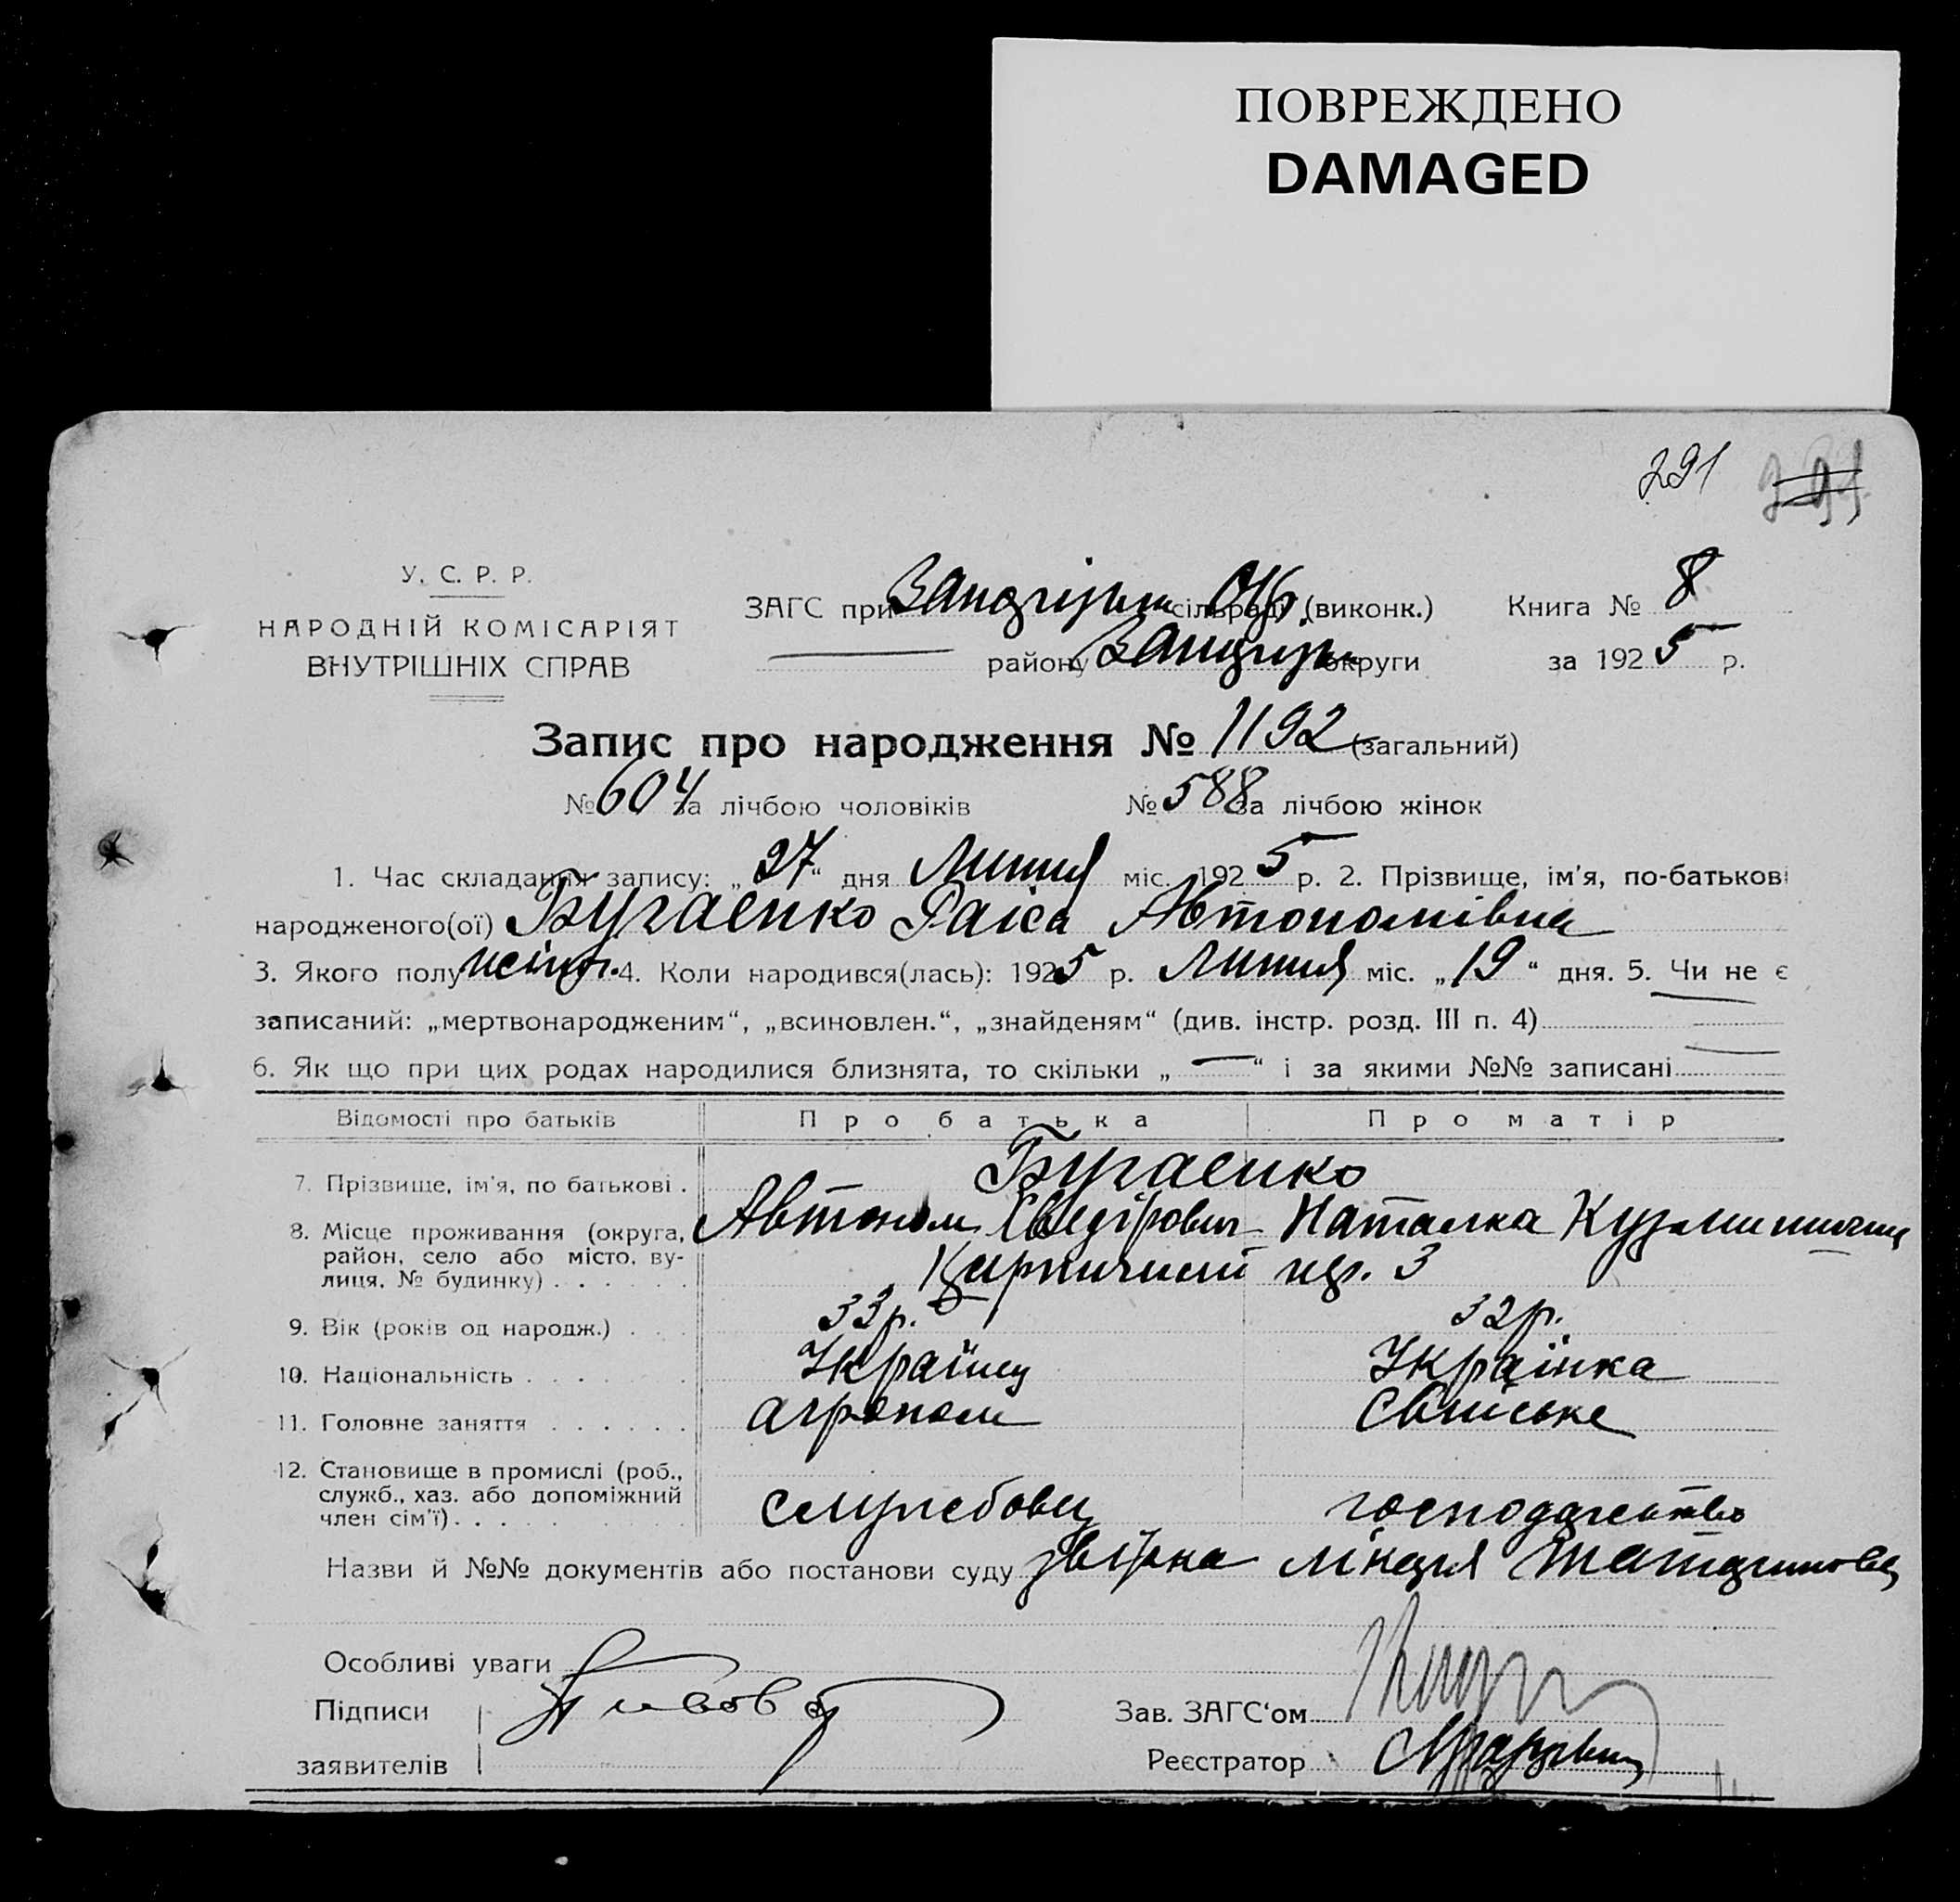 ПОВРЕЖДЕНО
DAMAGED
291
У. С. Р. Р.
НАРОДНІЙ КОМІСАРІЯТ
ВНУТРІШНІХ СПРАВ
ЗАГС при сільраді (виконк.) Книга № 8
району округи за 1925 р.
Запис про народження № 1192 (загальний)
№ 604 за лічбою чоловіків № 588 за лічбою жінок
1. Час складання запису: „27“ дня Липня міс. 1925 р. 2. Прізвище, ім'я, по-батькові
народженого(ої) Бугаенко Раіса Автономівна
3. Якого полу жіноч. 4. Коли народився(лась): 1925 р. Липня міс. „19“ дня. 5. Чи не є
записаний: „мертвонародженим“, „всиновлен.“, „знайденям“ (див. інстр. розд. III п. 4)
6. Як що при цих родах народилися близнята, то скільки „—“ і за якими №№ записані
Відомості про батьків Про батька Про матір
7. Прізвище, ім'я, по батькові . Бугаенко
Автоном Наталка
8. Місце проживання (округа, район, село або місто, вулиця, № будинку) . . . . . . 3
9. Вік (років од народж.) . . . 33р. 32р.
10. Національність . . . . . . Украінец Украінка
11. Головне заняття . . . . . . агроном
12. Становище в промислі (роб., служб., хаз. або допоміжний член сім'ї) . . . . службовец господарство
Назви й №№ документів або постанови суду
Особливі уваги
Підписи Зав. ЗАГС‘ом
заявителів Реєстратор